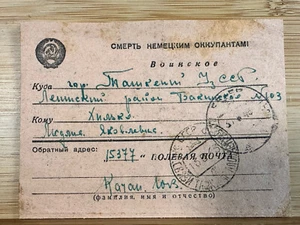 СМЕРТЬ НЕМЕЦКИМ ОККУПАНТАМ!
Воинское
Куда гор. Ташкент УзССР
Ленинский район Бакинская
Кому Химко
Яковлевне
Обратный адрес: 15377 ПОЛЕВАЯ ПОЧТА
Качан
(фамилия, имя и отчество)